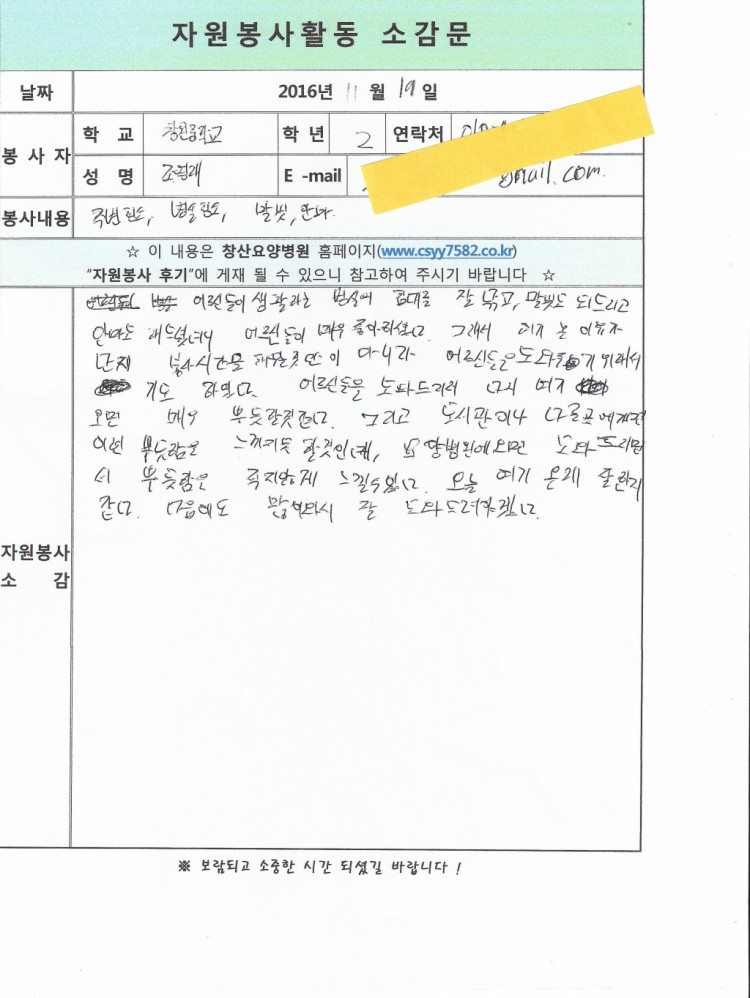 자원봉사활동 소감문
날짜 2016년 11 월 19 일
봉사자 학 교 창원중학교 학 년 2 연락처
성 명 E-mail @mail.com.
봉사내용 말벗, 안마.
☆ 이 내용은 창산요양병원 홈페이지(www.csyy7582.co.kr)
"자원봉사 후기"에 게재 될 수 있으니 참고하여 주시기 바랍니다 ☆
자원봉사 소 감
어르신들이 생활하는 병실에 침대를 잘 닦고, 말벗도 되드리고
안마도 해드렸더니 어르신들이 매우 좋아하셨다. 그래서 여기 온 이유가
단지 봉사시간을 이 아니라 어르신들을 도와 기 위해서
기도 하였다. 어르신들을 도와드리러 다시 여기
오면 매우 뿌듯할것같다. 그리고 도서관이나 다른곳에게선
이런 뿌듯함은 느끼지못 할것인데, 요양병원에오면 도와드리면
서 뿌듯함은 느낄수있다. 오늘 여기 온게 잘한거
같다. 다음에도 잘 도와드려야겠다.
※ 보람되고 소중한 시간 되셨길 바랍니다 !